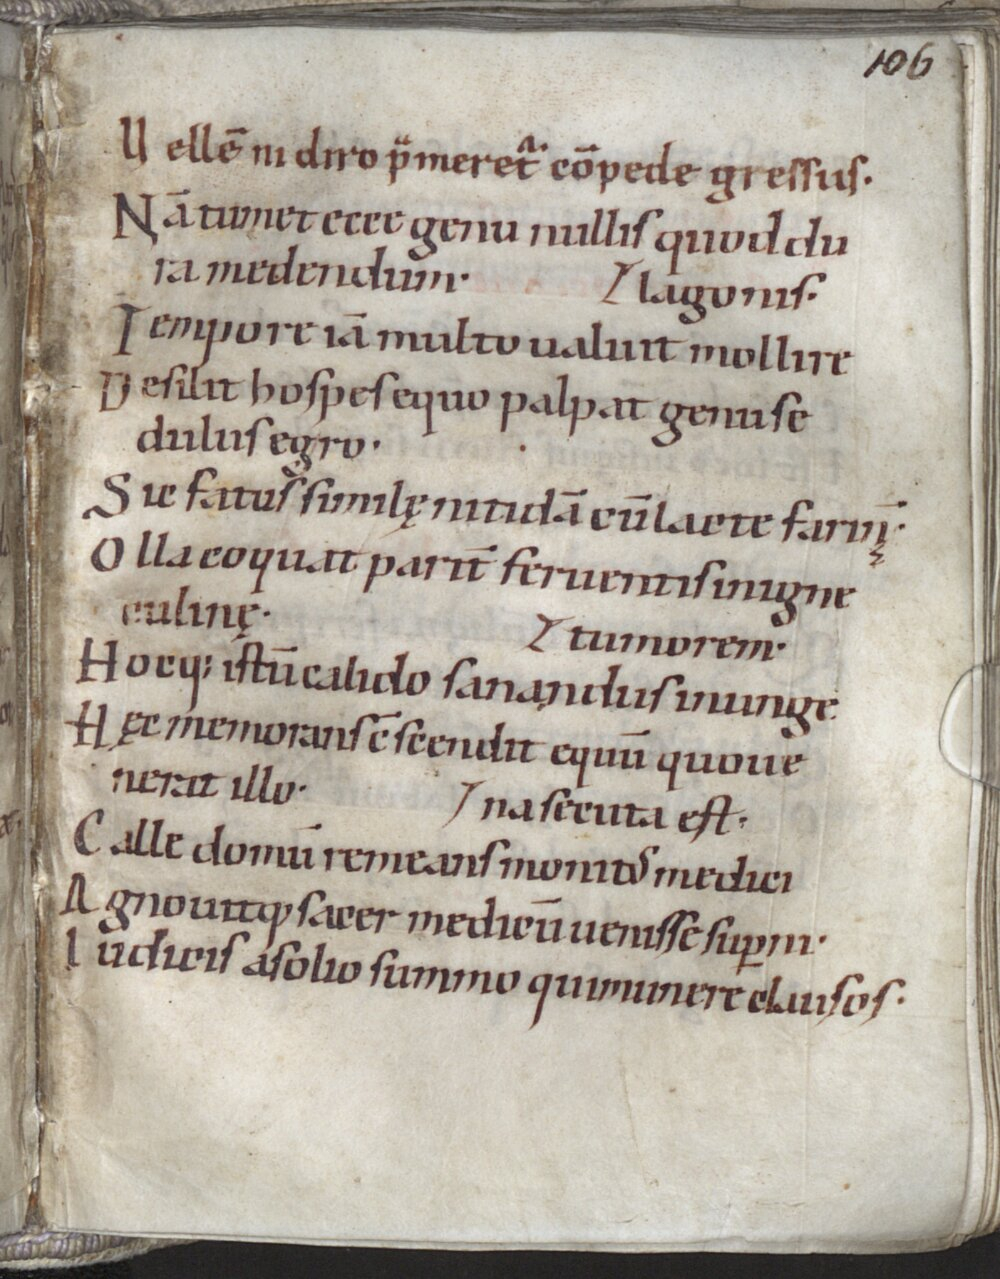 106
U ellē ni diro p̄meret᷑ cōpede gressus·
Nā tumet ecce genu nullis quod du
ra medendum· lagonis·
Tempore iā multo ualuit mollire
Desilit hospes equo palpat genu se
dulus egro·
Sic fatus similę nitidā cū lacte farinę·
Olla coquat parit̄ feruentis in igne
culinę·
Hocq; istū calido sanandus inunge tumorem·
Hęc memorans c̄scendit equū quo ue
nerat illo· na secuta est·
Calle domū remeans monitꝰ medici
Agnouitq; sacer medicū uenisse sup̄ni·
Iudicis a solio summo qui munere clausos·